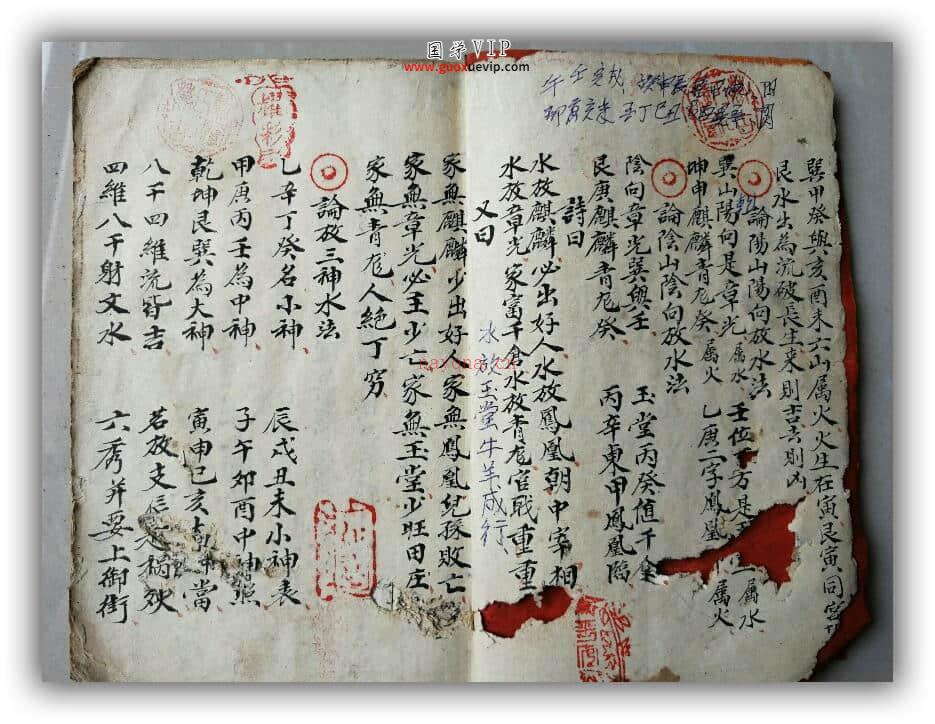 国学VIP
www.guoxuevip.com
nayona.cn
巽甲癸與亥酉未六山属火火生在寅艮寅同宮
艮水出為流破長生来則吉去則凶
論陽山陽向放水法
巽山陽向是章光属水 壬位方是属水
坤申麒麟青龙癸属火 乙庚二字鳳凰属火
論陰山陰向放水法
陰向章光巽與壬 玉堂丙癸值千金
艮庚麒麟青龙癸 丙辛東甲鳳凰臨
詩曰
水放麒麟必出好人水放鳳凰朝中宰相
水放章光家富千倉水放青龙官戰重重
水放玉堂牛羊成行
又曰
家無麒麟少出好人家無鳳凰兒孫敗亡
家無章光必主少亡家無玉堂少旺田庄
家無青龙人絶丁穷
論放三神水法
乙辛丁癸名小神 辰戌丑未小神表
甲庚丙壬為中神 子午卯酉中神照
乾坤艮巽為大神 寅申巳亥當
八干四維流皆吉 若放支禍
四維八干射文水 六秀并要上御街